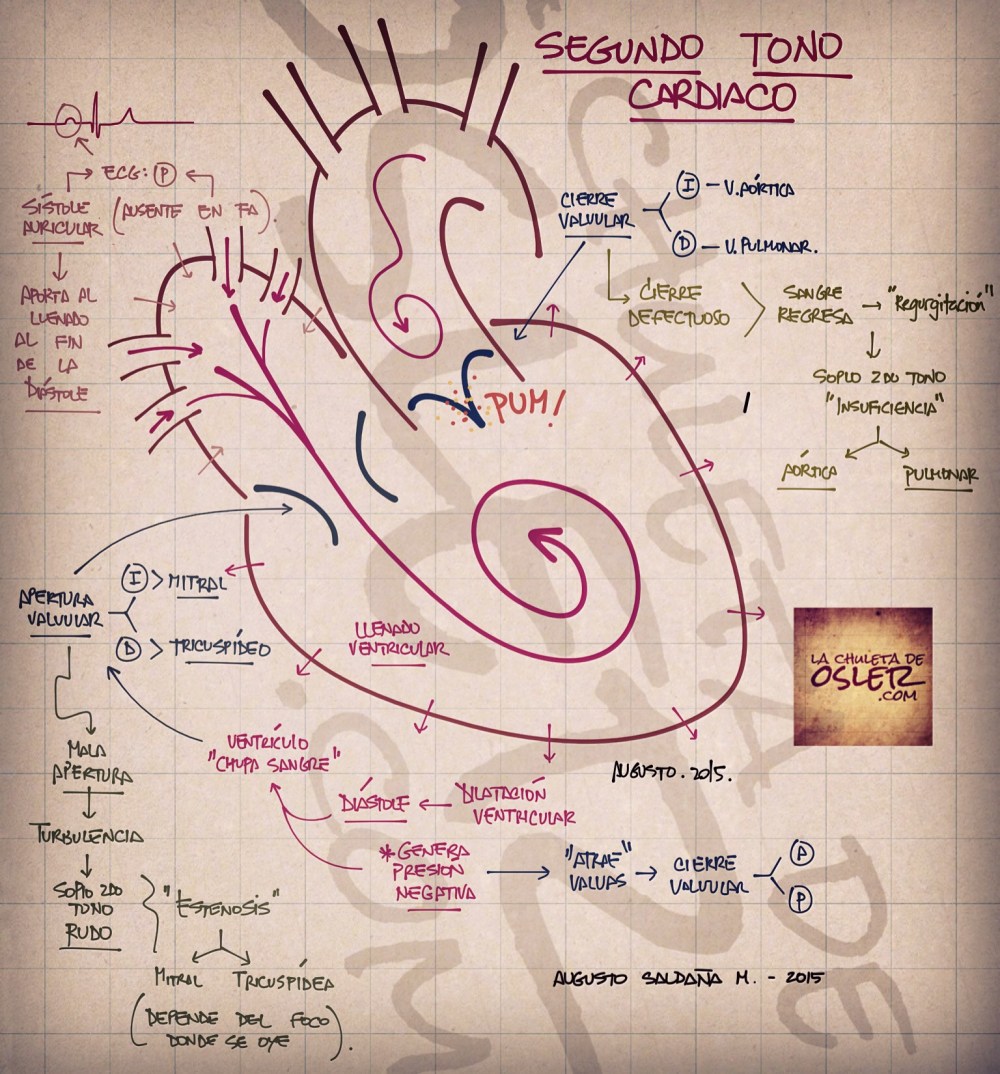 SEGUNDO TONO
CARDIACO
ECG: P
SÍSTOLE
AURICULAR
(AUSENTE EN FA).
APORTA AL
LLENADO
AL FIN
DE LA
DIÁSTOLE
CIERRE
VALVULAR
I - V. AÓRTICA
D - V. PULMONAR.
CIERRE
DEFECTUOSO
SANGRE
REGRESA
"Regurgitación"
SOPLO 2DO TONO
"INSUFICIENCIA"
AÓRTICA
PULMONAR
PUM!
APERTURA
VALVULAR
I > MITRAL
D > TRICUSPÍDEO
LLENADO
VENTRICULAR
LA CHULETA DE
OSLER
.COM
VENTRÍCULO
"CHUPA SANGRE"
MALA
APERTURA
AUGUSTO. 2015.
DIÁSTOLE
DILATACIÓN
VENTRICULAR
TURBULENCIA
*GENERA
PRESION
NEGATIVA
"ATRAE"
VALVAS
CIERRE
VALVULAR
A
P
SOPLO 2DO
TONO
RUDO
"ESTENOSIS"
MITRAL
TRICUSPÍDEA
(DEPENDE DEL FOCO
DONDE SE OYE).
AUGUSTO SALDAÑA M. - 2015
LA CHULETA DE
OSLER
.COM